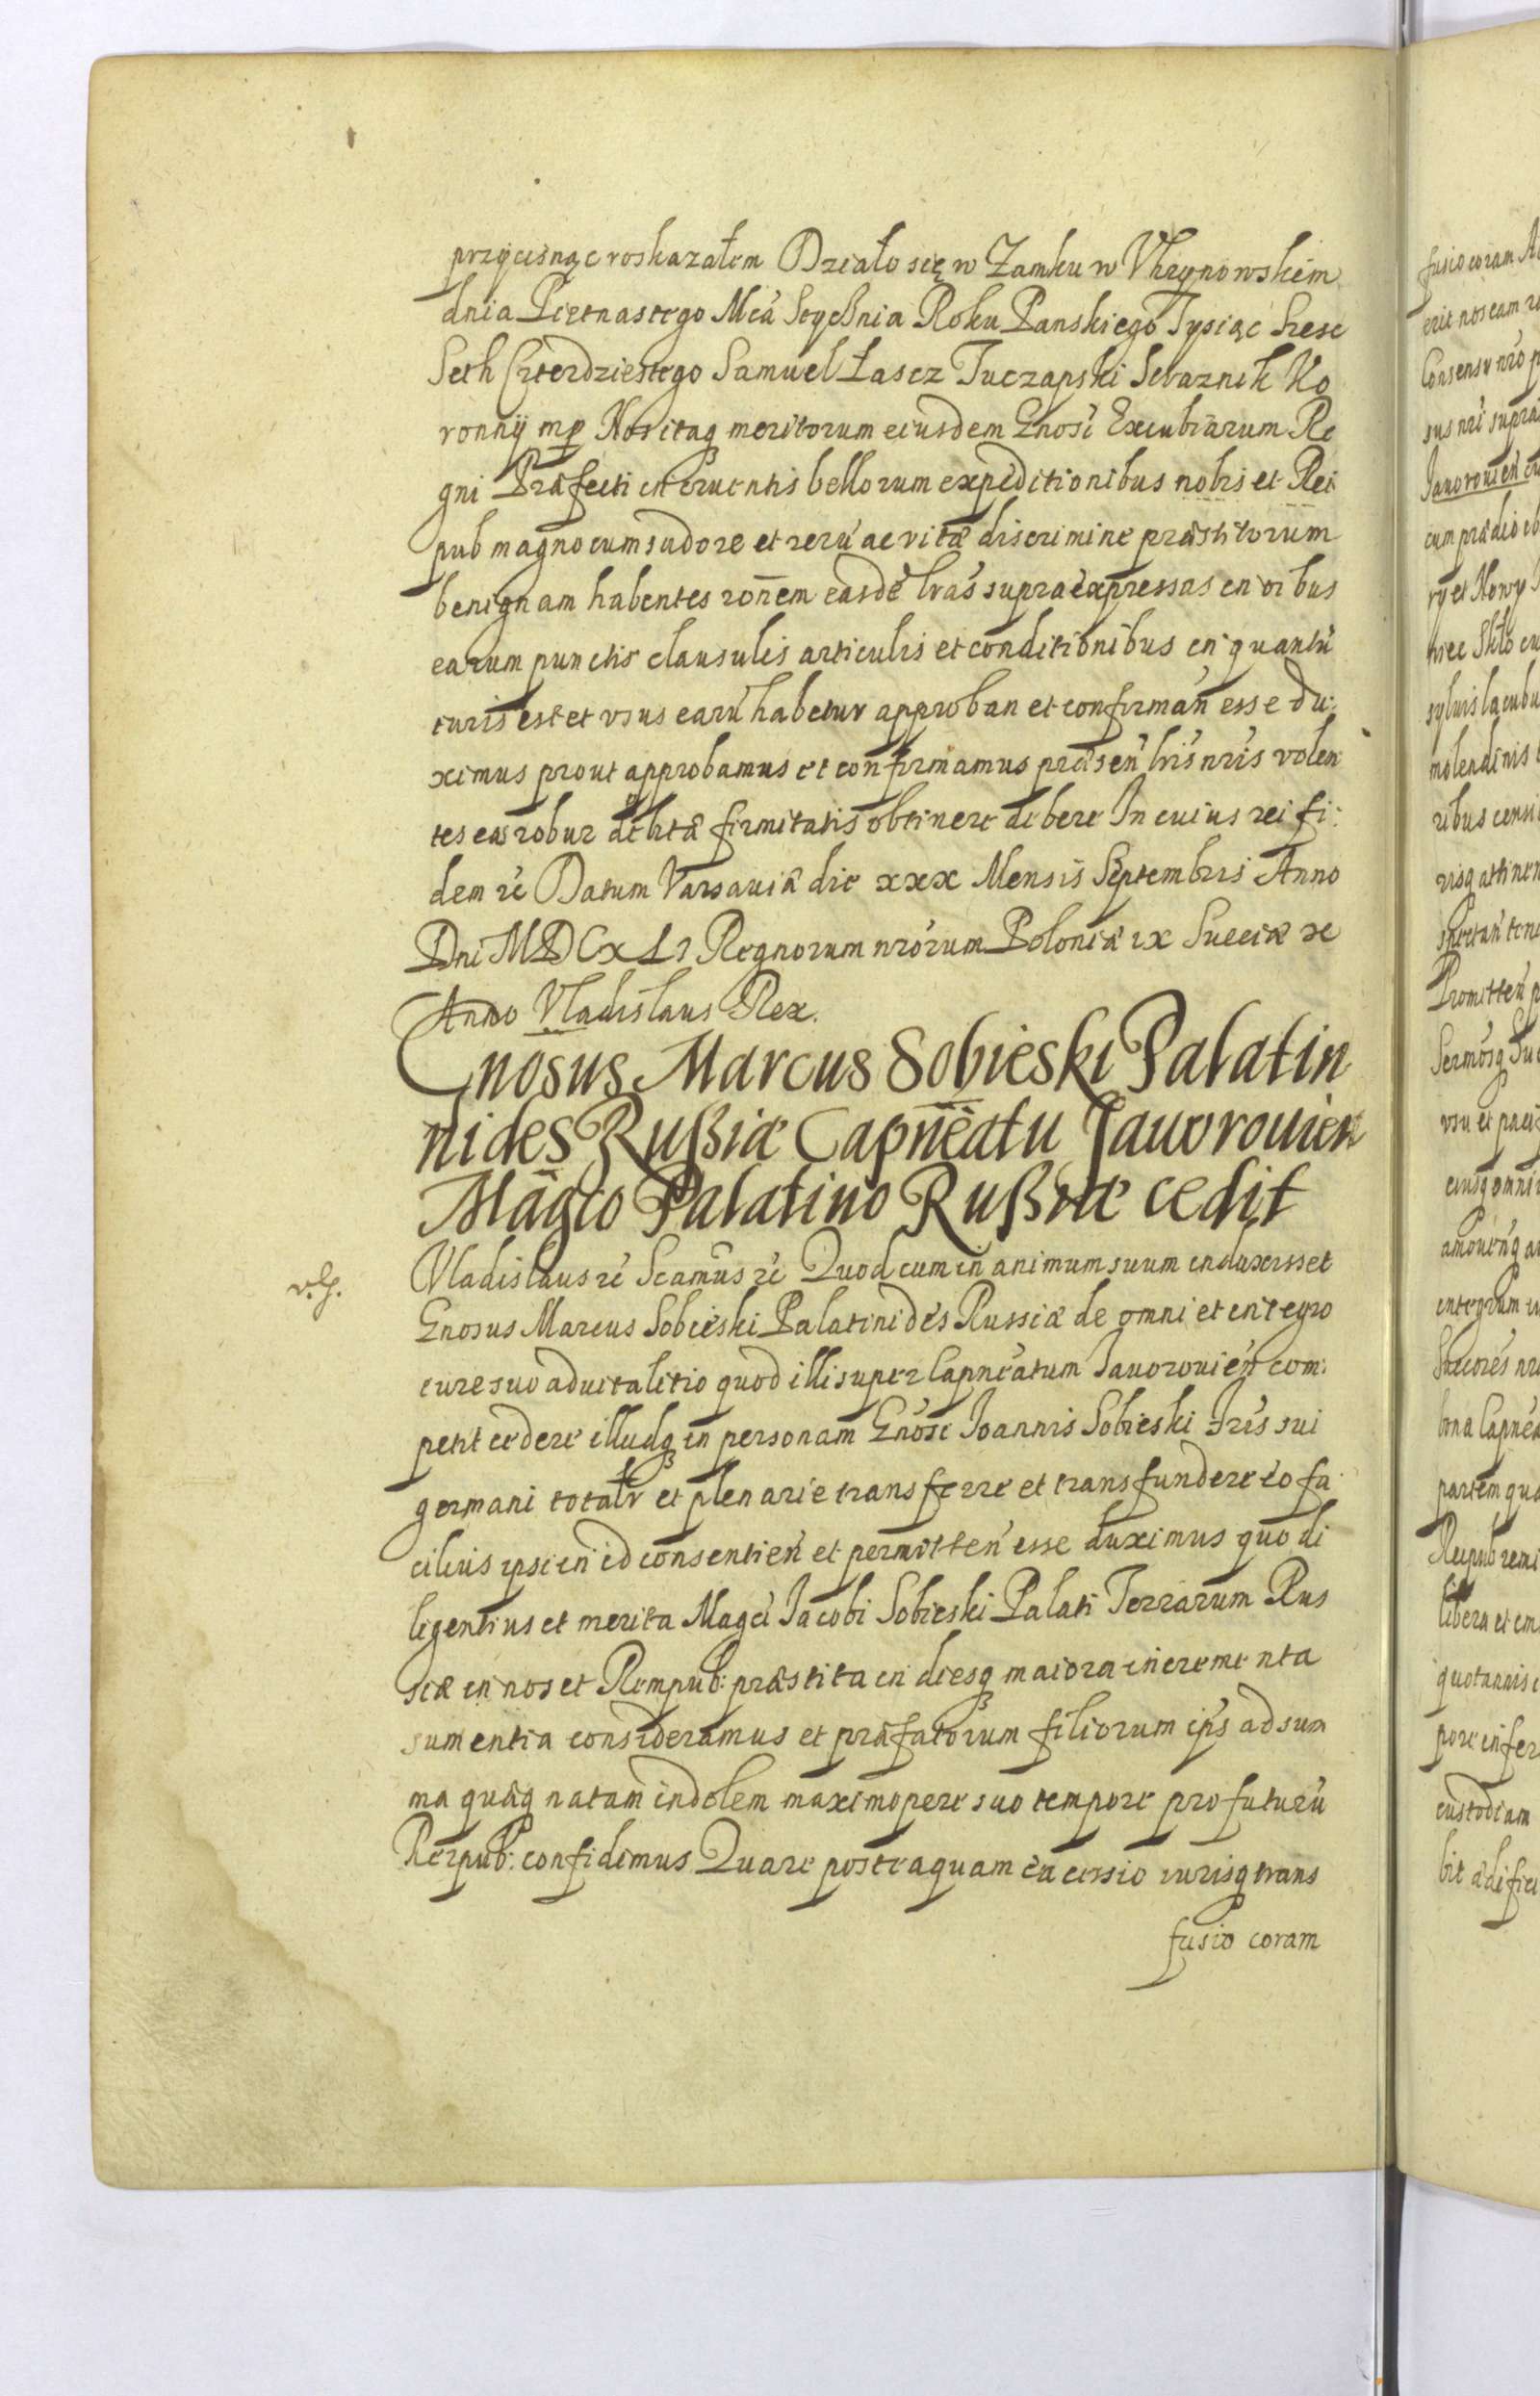 przycisnąc roskazałem Działo się w Zamku w Vhrynowskim
dnia Pietnastego Mca Stycznia Roku Panskiego Tysiąc Szesc
Seth Czterdziestego Samuel Łascz Tuczapski Straznik Ko
ronnÿ mp Nos itaq meritorum eiusdem Gnosi Excubiarum Re
gni Præfecti in cruentis bellorum expeditionibus nobis et Rei
pub magno cum sudore et reru ac vitæ discrimine præstitorum
benignam habentes ronem easde lras supra expressas in oibus
earum punctis clausulis articulis et conditionibus in quantu
iuris est et vsus earu habetur approban et confirman esse du:
ximus prout approbamus et confirmamus præsen lris nris volen
tes eas robur debitæ firmitatis obtinere debere In cuius rei fi:
dem rc Datum Varsauiæ die xxx Mensis Septembris Anno
Dni MDCxLI Regnorum nrorum Poloniæ ix Sueciæ rc
Anno Vladislaus Rex.
Gnosus Marcus Sobieski Palatin
nides Rußiæ Capneatu Jauorouien
Magco Palatino Rußiæ cedit
Vladislaus rc Scamus rc Quod cum in animum suum induxisset
Gnosus Marcus Sobieski Palatinides Russiæ de omni et integro
iure suo aduitalitio quod illi super Capneatum Jauorouien com:
petit cedere illudq in personam Gnosi Joannis Sobieski Fris sui
germani totalr et plenarie transferre et transfundere eo fa
cilius ipsi in id consentien et permitten esse duximus quo di
ligentius et merita Magci Jacobi Sobieski Palati Terrarum Rus
siæ in nos et Rempub: præstita in diesq maiora incrementa
sumentia consideramus et præfatorum filiorum ips ad sum
ma quæq natam indolem maximopere suo tempore profuturu
Reipub: confidimus Quare posteaquam ea cessio iurisq trans
fusio coram